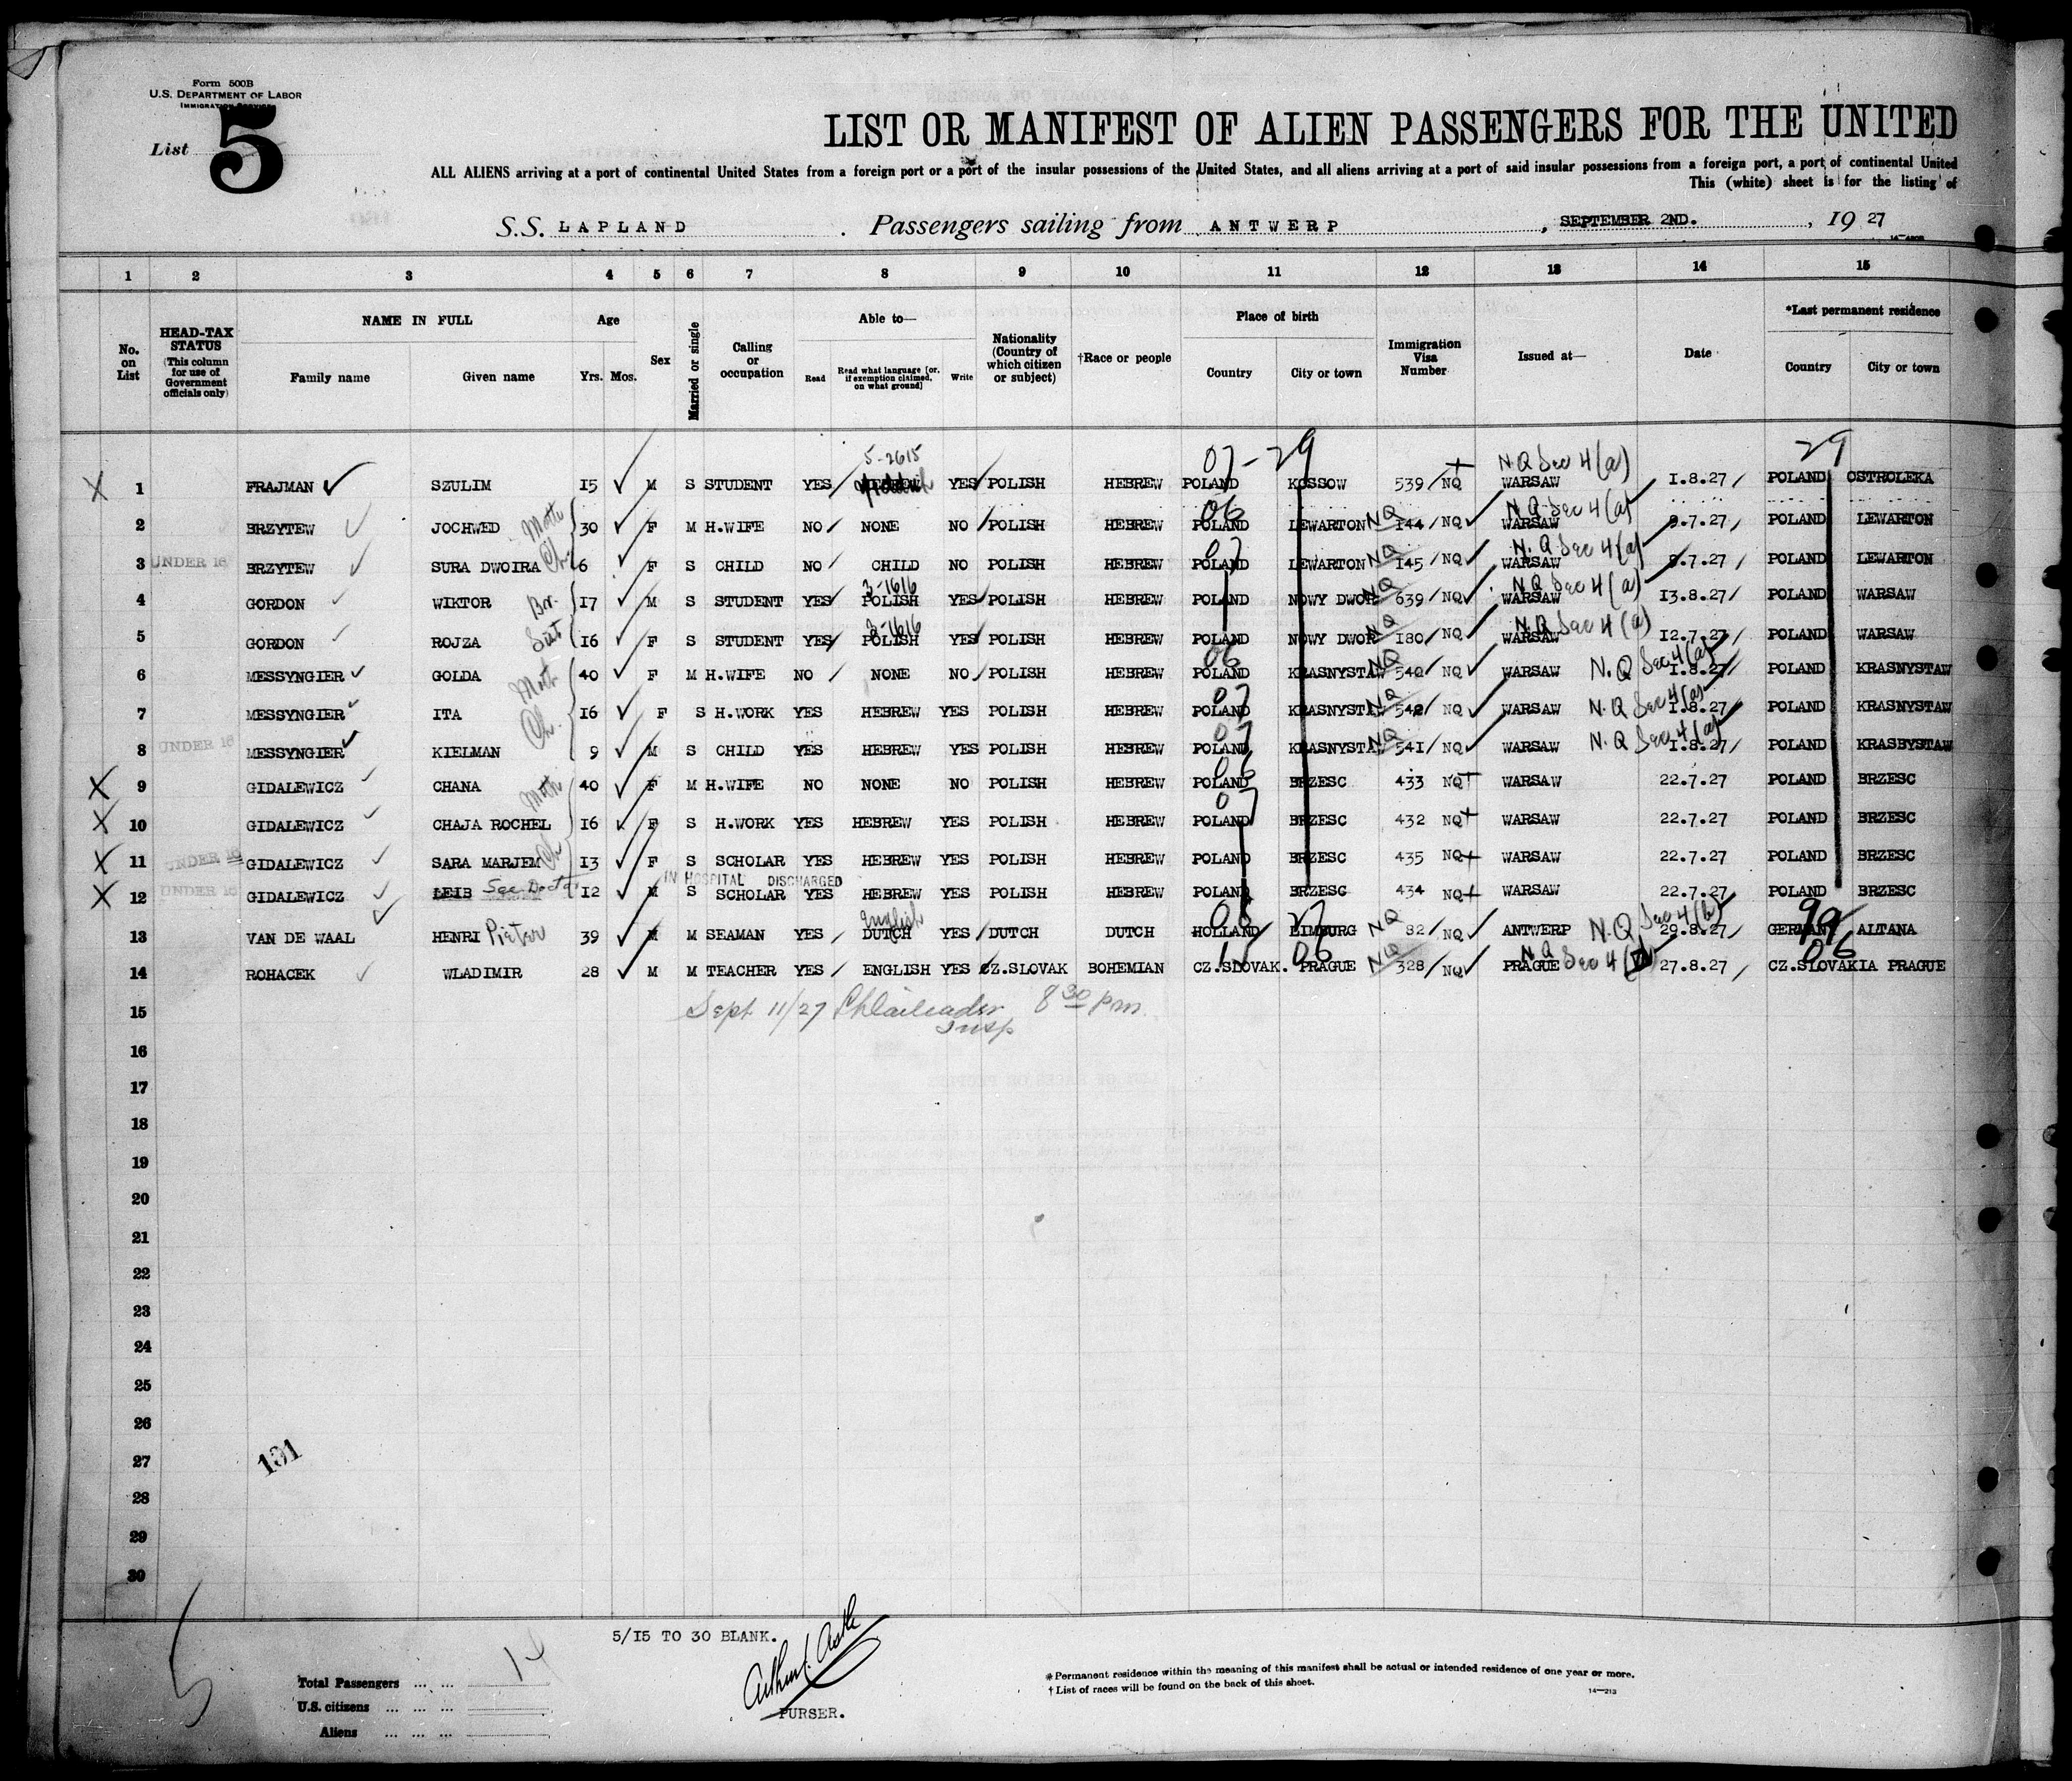 Form 500B
U.S. DEPARTMENT OF LABOR
IMMIGRATION SERVICE
List 5
LIST OR MANIFEST OF ALIEN PASSENGERS FOR THE UNITED
ALL ALIENS arriving at a port of continental United States from a foreign port or a port of the insular possessions of the United States, and all aliens arriving at a port of said insular possessions from a foreign port, a port of continental United
This (white) sheet is for the listing of
S.S. LAPLAND . Passengers sailing from ANTWERP , SEPTEMBER 2ND. , 19 27
1 2 3 4 5 6 7 8 9 10 11 12 13 14 15
No. on List
HEAD-TAX STATUS (This column for use of Government officials only)
NAME IN FULL
Family name Given name
Age
Yrs. Mos.
Sex
Married or single
Calling or occupation
Able to—
Read Read what language [or, if exemption claimed, on what ground] Write
Nationality (Country of which citizen or subject)
†Race or people
Place of birth
Country City or town
Immigration Visa Number
Issued at—
Date
*Last permanent residence
Country City or town
5-2615 07-29 N.Q Sec 4(a) 29
X 1 FRAJMAN SZULIM 15 M S STUDENT YES YES POLISH HEBREW POLAND KOSSOW 539/NQ WARSAW 1.8.27 POLAND OSTROLEKA
Moth 06 NQ N.Q Sec 4(a)
2 BRZYTEW JOCHWED 30 F M H.WIFE NO NONE NO POLISH HEBREW POLAND LEWARTON 144/NQ WARSAW 9.7.27 POLAND LEWARTON
Ch. 07 NQ N.Q Sec 4(a)
3 UNDER 16 BRZYTEW SURA DWOIRA 6 F S CHILD NO CHILD NO POLISH HEBREW POLAND LEWARTON 145/NQ WARSAW 9.7.27 POLAND LEWARTON
Br. 3-1616 NQ N.Q Sec 4(a)
4 GORDON WIKTOR 17 M S STUDENT YES POLISH YES POLISH HEBREW POLAND NOWY DWOR 639/NQ WARSAW 13.8.27 POLAND WARSAW
Sist 3-1616 NQ N.Q Sec 4(a)
5 GORDON ROJZA 16 F S STUDENT YES POLISH YES POLISH HEBREW POLAND NOWY DWOR 180/NQ WARSAW 12.7.27 POLAND WARSAW
Moth 06 NQ N.Q Sec 4(a)
6 MESSYNGIER GOLDA 40 F M H.WIFE NO NONE NO POLISH HEBREW POLAND KRASNYSTAW 540/NQ WARSAW 1.8.27 POLAND KRASNYSTAW
Ch. 07 NQ N.Q Sec 4(a)
7 MESSYNGIER ITA 16 F S H.WORK YES HEBREW YES POLISH HEBREW POLAND KRASNYSTA 542/NQ WARSAW 1.8.27 POLAND KRASNYSTAW
07 NQ N.Q Sec 4(a)
8 UNDER 16 MESSYNGIER KIELMAN 9 M S CHILD YES HEBREW YES POLISH HEBREW POLAND KRASNYSTA 541/NQ WARSAW 1.8.27 POLAND KRASBYSTAW
Moth 06
X 9 GIDALEWICZ CHANA 40 F M H.WIFE NO NONE NO POLISH HEBREW POLAND BRZESC 433 NQ WARSAW 22.7.27 POLAND BRZESC
07
X 10 GIDALEWICZ CHAJA ROCHEL 16 F S H.WORK YES HEBREW YES POLISH HEBREW POLAND BRZESC 432 NQ WARSAW 22.7.27 POLAND BRZESC
X 11 UNDER 16 GIDALEWICZ SARA MARJEM Ch 13 F S SCHOLAR YES HEBREW YES POLISH HEBREW POLAND BRZESC 435 NQ WARSAW 22.7.27 POLAND BRZESC
IN HOSPITAL DISCHARGED
X 12 UNDER 16 GIDALEWICZ LEIB 12 M S SCHOLAR YES HEBREW YES POLISH HEBREW POLAND BRZESC 434 NQ WARSAW 22.7.27 POLAND BRZESC
English NQ N.Q Sec 4(b) 99
13 VAN DE WAAL HENRI Pieter 39 M M SEAMAN YES DUTCH YES DUTCH DUTCH HOLLAND LIMBURG 82/NQ ANTWERP 29.8.27 GERMANY ALTANA
06 NQ N.Q Sec 4 06
14 ROHACEK WLADIMIR 28 M M TEACHER YES ENGLISH YES CZ.SLOVAK BOHEMIAN CZ.SLOVAK. PRAGUE 328/NQ PRAGUE 27.8.27 CZ.SLOVAKIA PRAGUE
15 Sept 11/27 8 30 pm.
Insp
16
17
18
19
20
21
22
23
24
25
26
27 131
28
29
30
5/15 TO 30 BLANK.
5
Total Passengers 14
U.S. citizens
Aliens
PURSER.
*Permanent residence within the meaning of this manifest shall be actual or intended residence of one year or more.
†List of races will be found on the back of this sheet.
14—213